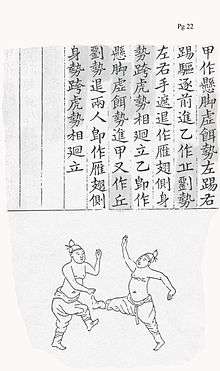 Pg 22
甲作懸脚虛餌勢左踢右
踢驅逐前進乙作丘劉勢
左右手遮退作雁翅側身
勢跨虎勢相廻立乙卽作
懸脚虛餌勢進甲又作丘
劉勢退兩人卽作雁翅側
身勢跨虎勢相廻立